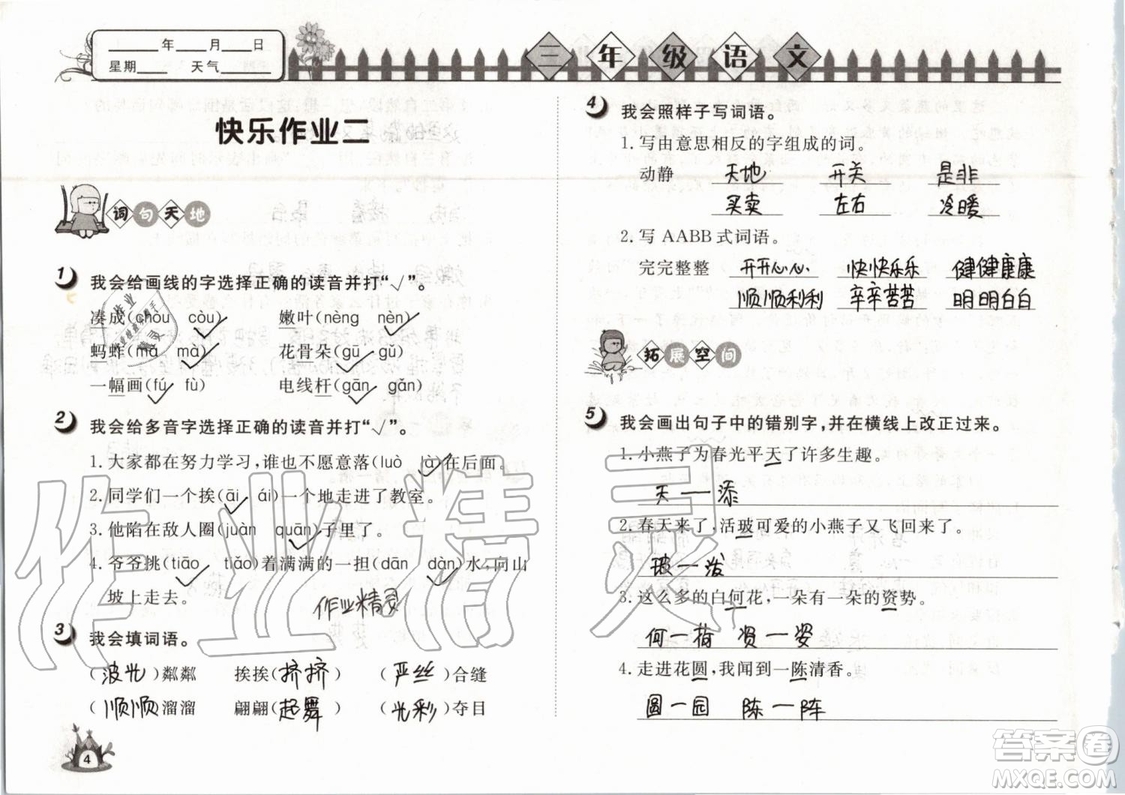 ____年____月____日
星期____ 天气____
三年级语文
快乐作业二
词句天地
1 我会给画线的字选择正确的读音并打“√”。
凑成(chòu còu√) 嫩叶(nèng nèn√)
蚂蚱(mǎ mà√) 花骨朵(gū√ gǔ)
一幅画(fú√ fù) 电线杆(gān√ gǎn)
2 我会给多音字选择正确的读音并打“√”。
1. 大家都在努力学习,谁也不愿意落(luò là√)在后面。
2. 同学们一个挨(āi√ ái)一个地走进了教室。
3. 他陷在敌人圈(juàn quān√)子里了。
4. 爷爷挑(tiāo√ tiǎo)着满满的一担(dān dàn√)水,向山
坡上走去。
作业精灵
3 我会填词语。
(波光)粼粼 挨挨(挤挤) (严丝)合缝
(顺顺)溜溜 翩翩(起舞) (光彩)夺目
4
4 我会照样子写词语。
1. 写由意思相反的字组成的词。
动静 天地 开关 是非
买卖 左右 冷暖
2. 写 AABB 式词语。
完完整整 开开心心 快快乐乐 健健康康
顺顺利利 辛辛苦苦 明明白白
拓展空间
5 我会画出句子中的错别字,并在横线上改正过来。
1. 小燕子为春光平天了许多生趣。
天—添
2. 春天来了,活玻可爱的小燕子又飞回来了。
玻—泼
3. 这么多的白何花,一朵有一朵的资势。
何—荷 资—姿
4. 走进花圆,我闻到一陈清香。
圆—园 陈—阵
作业精灵
答案卷
MXQE.COM